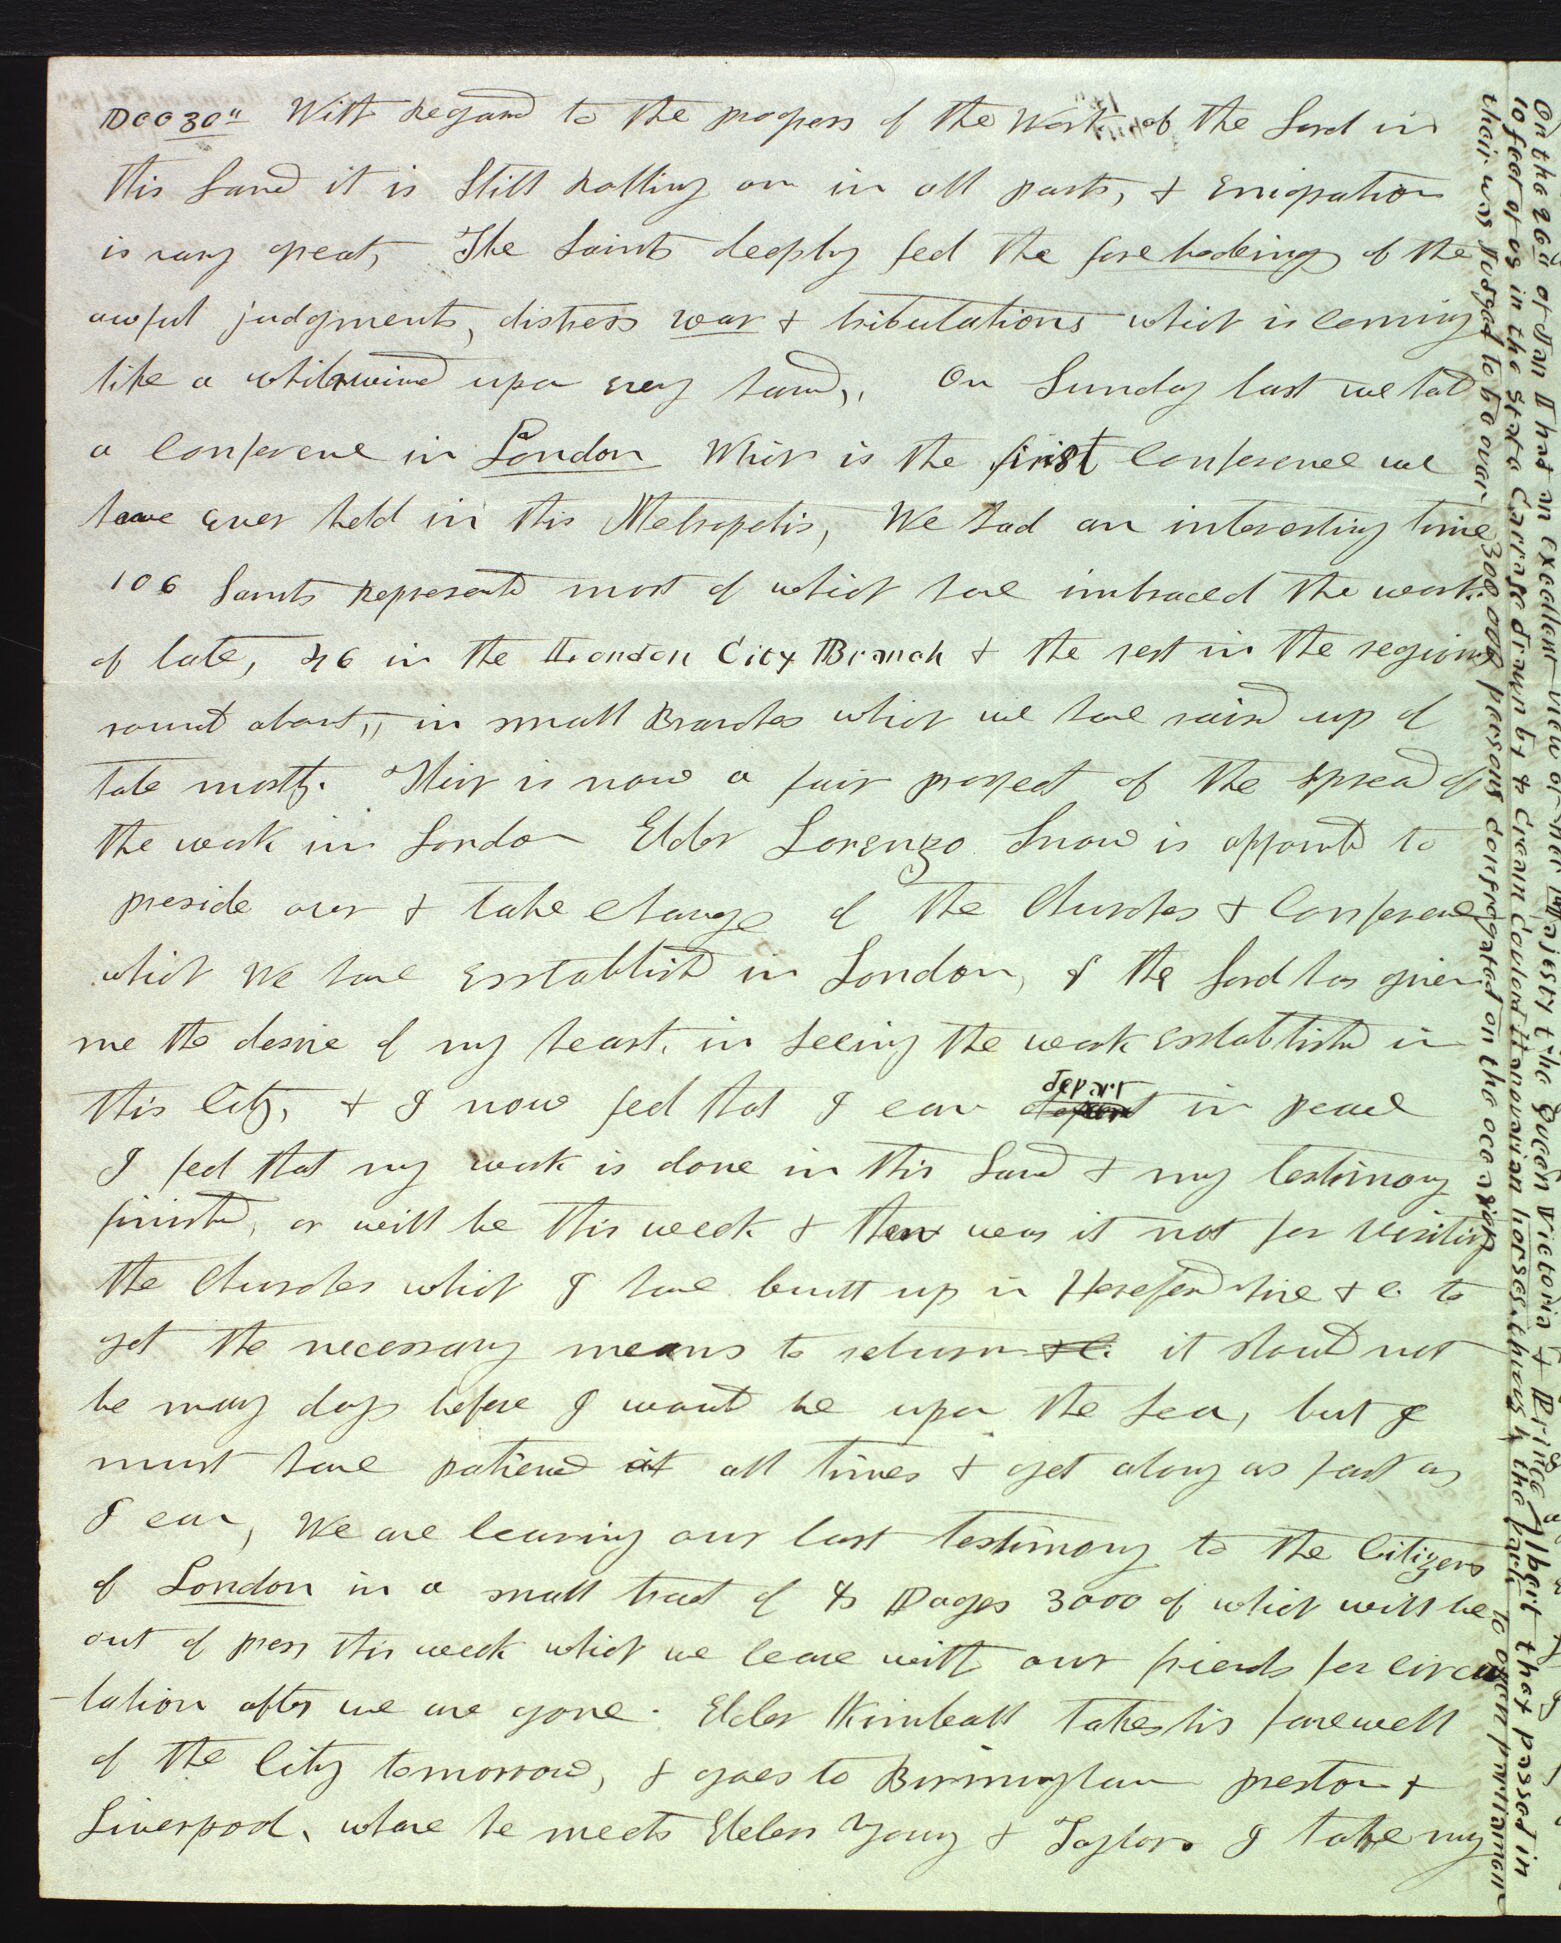 DCC 30" With regard to the progress of the Work of the Lord in
this Land it is Still Rolling on in all parts, & Emigration
is vary great, The Saints deeply feel the forebodeings of the
awful judgments, distress war & tribulations which is coming
like a whilrwind upon evry hand,. On Sunday last we held
a Conference in London Which is the first Conference we
have ever held in this Metropolis, We had an interesting time
106 Saints Represented most of which have imbraced the work
of late, 46 in the London City Branch & the rest in the regions
round about,, in small Branches which we have raised up of
late mostly. Their is now a fair prospect of the spread of
the work in London Elder Lorenzo Snow is appointed to
preside over & take charge of the Churches & Conference
which We have esstablishd in London, & the Lord has given
me the desire of my heart, in seeing the work esstablishd in
this City, & I now feel that I can depart in peace
I feel that my work is done in this Land & my testimony
finishd, or will be this week & then was it not for visiting
the Churches which I have built up in Herefordshire &c. to
get the necessary means to return &c. it should not
be many days before I would be upon the sea, but I
must have patience at all times & get along as fast as
I can, We are leaving our last testimony to the Citizens
of London in a small tract of 8 Pages 3000 of which will be
out of press this week which we leave with our friends for circu
-lation after we are gone. Elder Kimball takes his farewell
of the City tomorrow, & goes to Birmingham preston &
Liverpool, whare he meets Elders Young & Taylor. I take my
On the 26th of Jan I had an excellent view of Her Majesty the Queen Victoria & Prince Albert that passed in
10 feet of us in the State Carrage drawn by 8 Cream Coulerd Hanovarian horses through the park to open parliament
thair was Judged to be over 300,000 persons congregated on the occasion